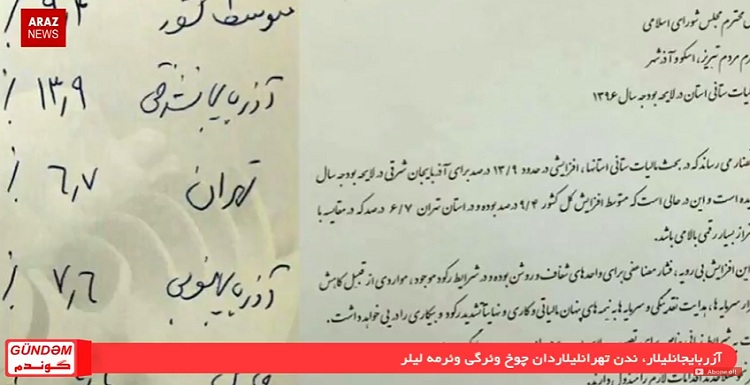 ARAZ
NEWS
متوسط کشور ۹٫۴ ٪
آذربایجان شرقی ۱۳٫۹ ٪
تهران ۶٫۷ ٪
آذربایجان ۷٫۶ ٪
محترم مجلس شورای اسلامی
مردم تبریز، اسکو و آذرشهر
مالیات ستانی استان در لایحه بودجه سال ۱۳۹۶
می رساند که در بحث مالیات ستانی استانها، افزایشی در حدود ۱۳/۹ درصد برای آذربایجان شرقی در لایحه بودجه سال
است و این در حالی است که متوسط افزایش کل کشور ۹/۴ درصد بوده و در استان تهران ۶/۷ درصد که در مقایسه با
بسیار رقمی بالا می باشد.
این افزایش بی رویه، فشار مضاعفی برای واحدهای شفاف و روشن بوده و در شرایط رکود موجود، مواردی از قبیل کاهش
سرمایه ها، هدایت نقدینگی و سرمایه ها به نیمه های پنهان مالیاتی و کاری و نهایتا تشدید رکود و بیکاری را در پی خواهد داشت.
GÜNDƏM
گوندم
آزربایجانلیلار، ندن تهرانلیلاردان چوخ وئرگی وئرمه لیلر
Abone ol!